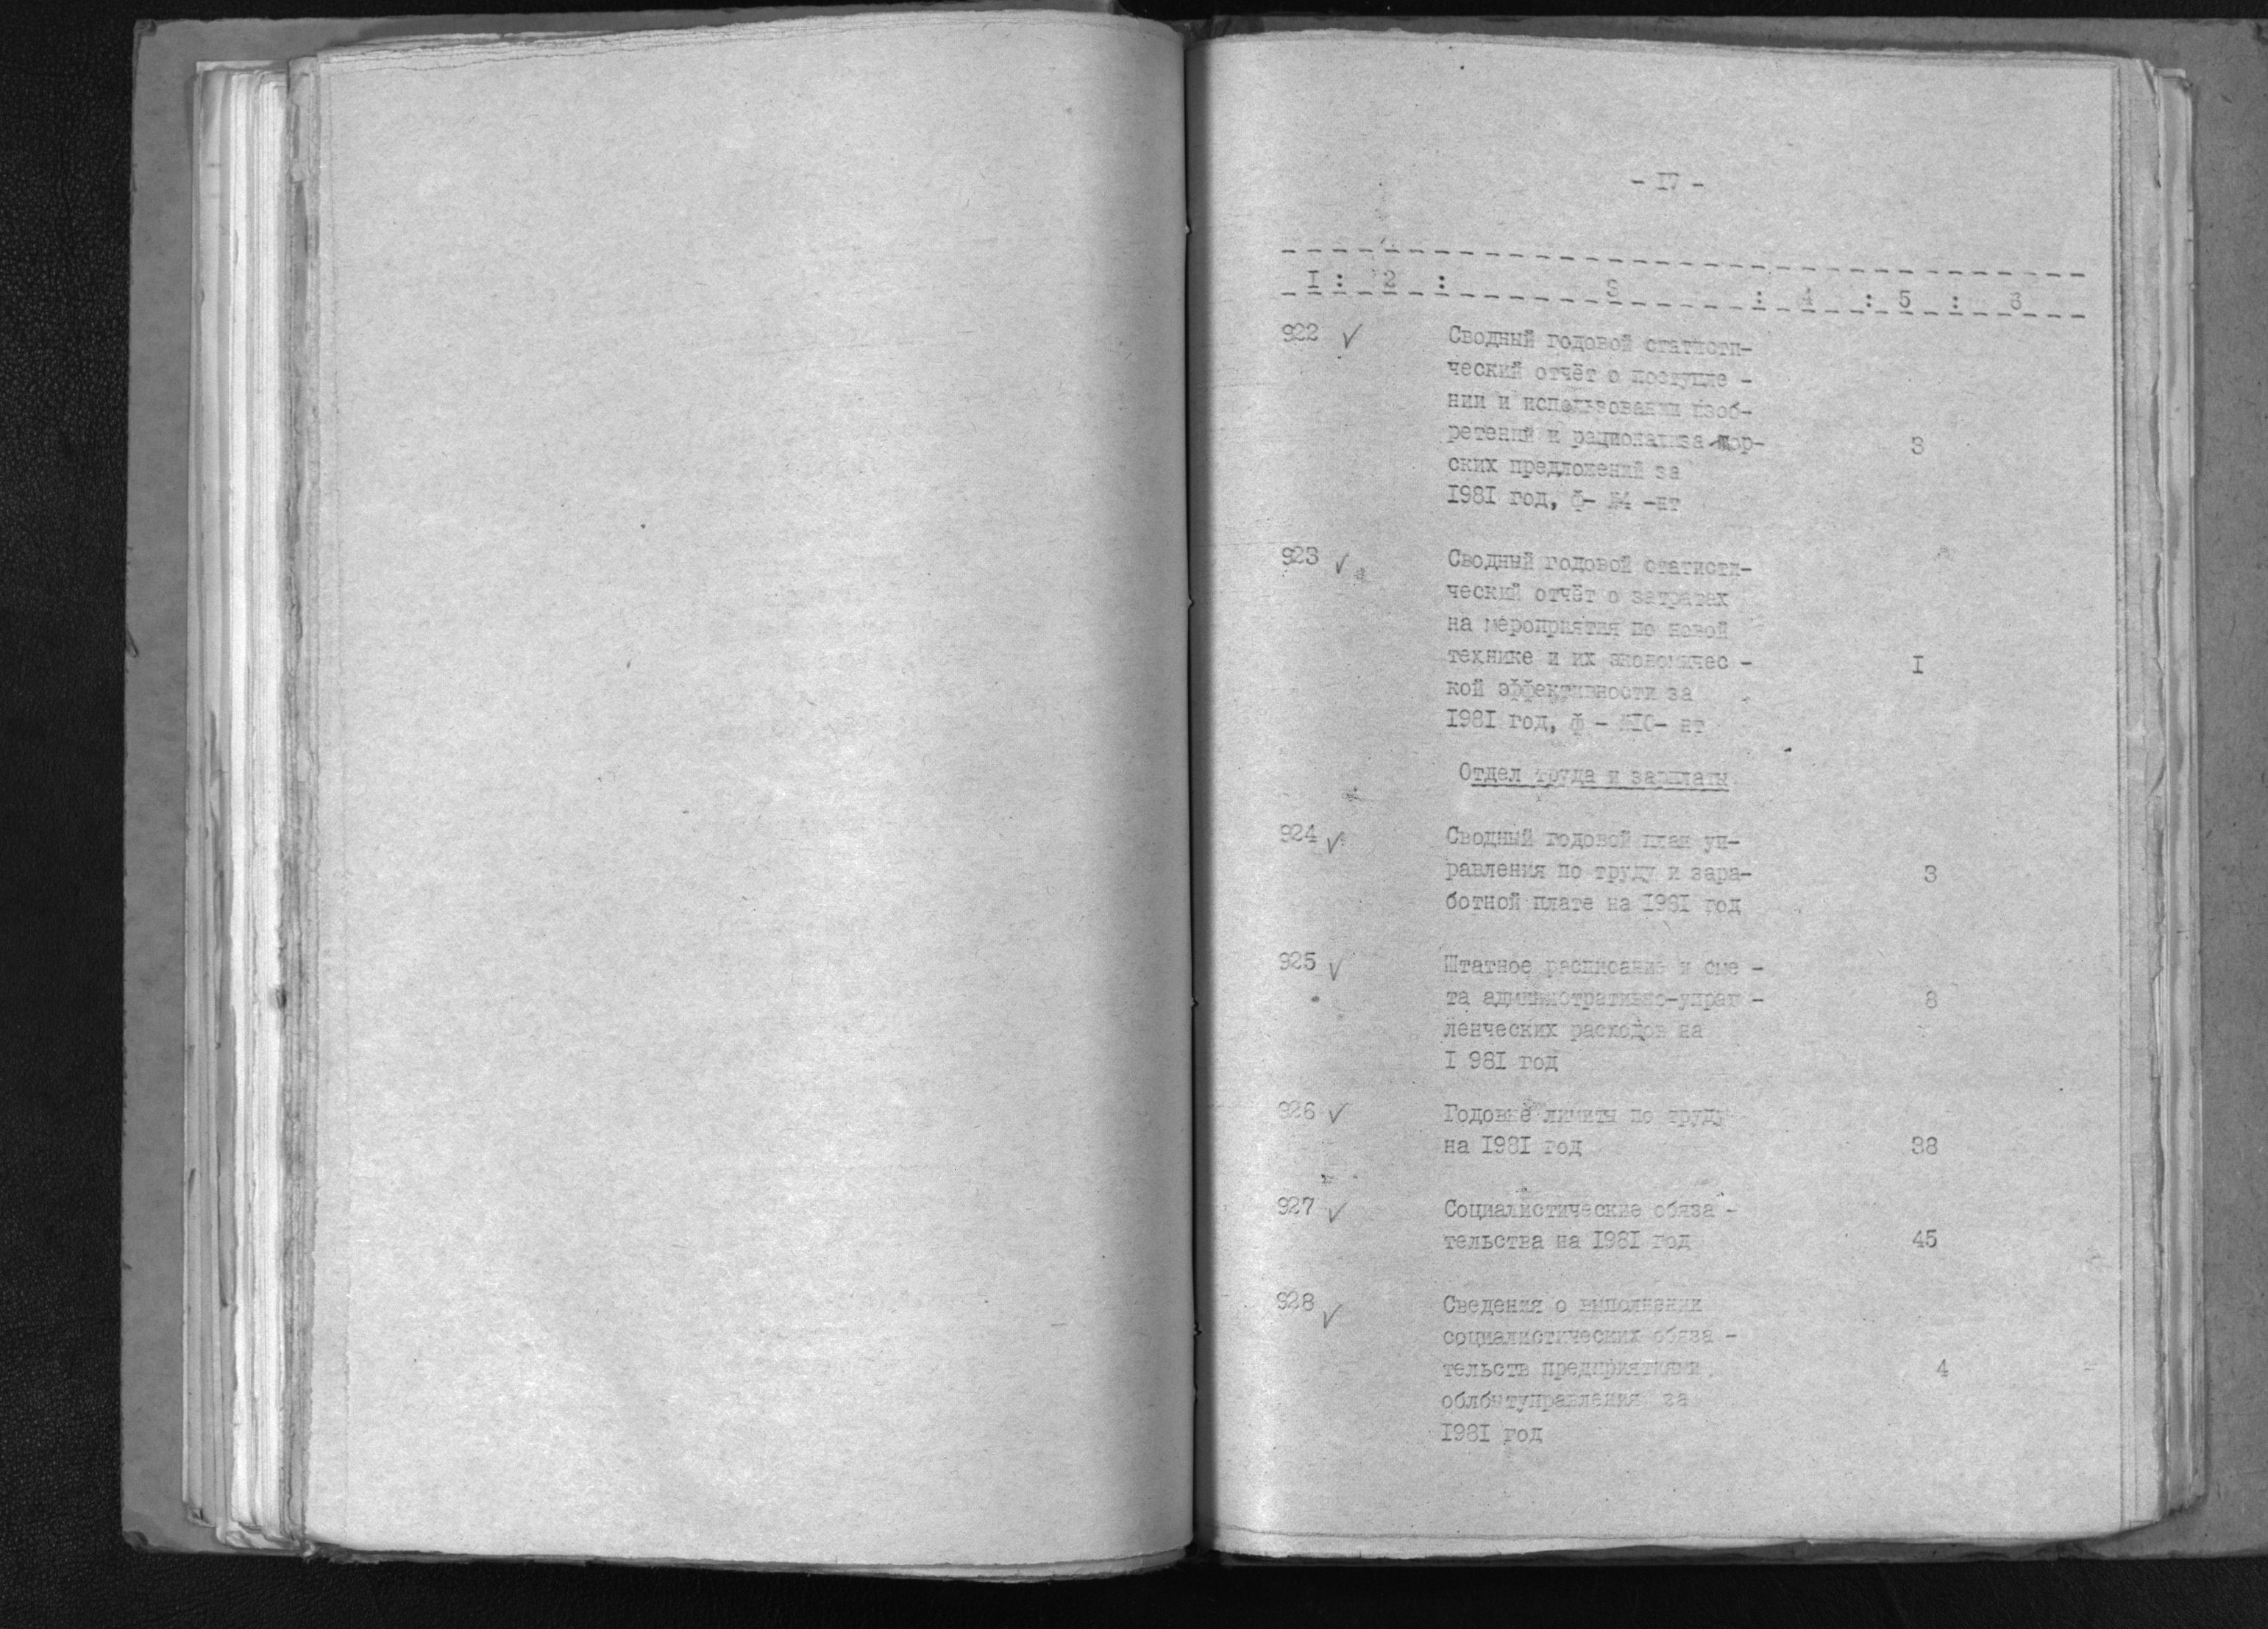 - 17 -
I : 2 : 3 : 4 : 5 : 6
922 ✓ Сводный годовой статисти-
ческий отчёт о поступле -
нии и использовании изоб-
ретений и рационализатор- 3
ских предложений за
1981 год, ф- №4 -нт
923 ✓ Сводный годовой статисти-
ческий отчёт о затратах
на мероприятия по новой
технике и их экономичес - I
кой эффективности за
1981 год, ф - №10- нт
Отдел труда и зарплаты
924 ✓ Сводный годовой план уп-
равления по труду и зара- 3
ботной плате на 1981 год
925 ✓ Штатное расписание и сме -
та административно-управ - 8
ленческих расходов на
I 981 год
926 ✓ Годовые лимиты по труду
на 1981 год 38
927 ✓ Социалистические обяза -
тельства на 1981 год 45
928 ✓ Сведения о выполнении
социалистических обяза -
тельств предприятиями 4
облбытуправления за
1981 год